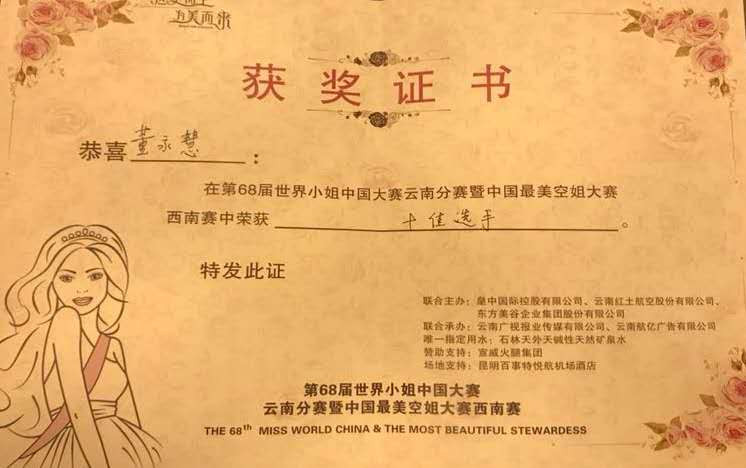 为美而来
获奖证书
恭喜董永慧：
在第68届世界小姐中国大赛云南分赛暨中国最美空姐大赛
西南赛中荣获 十佳选手。
特发此证
联合主办：皇中国际控股有限公司、云南红土航空股份有限公司、
东方美谷企业集团股份有限公司
联合承办：云南广视报业传媒有限公司、云南航亿广告有限公司
唯一指定用水：石林天外天碱性天然矿泉水
赞助支持：宣威火腿集团
场地支持：昆明百事特悦航机场酒店
第68届世界小姐中国大赛
云南分赛暨中国最美空姐大赛西南赛
THE 68th MISS WORLD CHINA & THE MOST BEAUTIFUL STEWARDESS